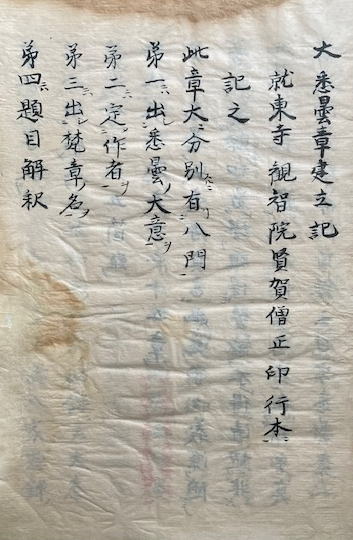 大悉曇章建立記
就東寺観智院賢賀僧正印行本ニ
記之
此章大ニ分別有八門
第一ニ出悉曇ノ大意ヲ
第二ニ定作者ヲ
第三ニ出梵章ノ名ヲ
第四ニ題目解釈